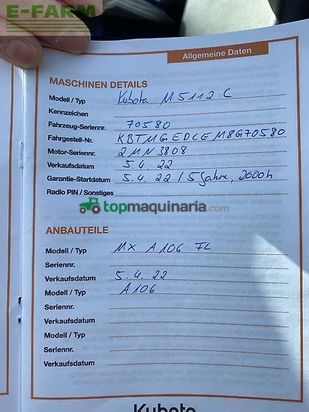 E-FARM
Allgemeine Daten
MASCHINEN DETAILS
Modell / Typ Kubota M5112 C
Kennzeichen
Fahrzeug-Seriennr. 70580
Fahrgestell-Nr. KBTMGEDCEM8G70580
Motor-Seriennr. 2MN3808
Verkaufsdatum 5.4.22
Garantie-Startdatum 5.4.22 / 5 Jahre, 2000h
Radio PIN / Sonstiges
topmaquinaria.com
ANBAUTEILE
Modell / Typ MX A106 FL
Seriennr.
Verkaufsdatum 5.4.22
Modell / Typ A106
Seriennr.
Verkaufsdatum
Modell / Typ
Seriennr.
Verkaufsdatum
Kubota